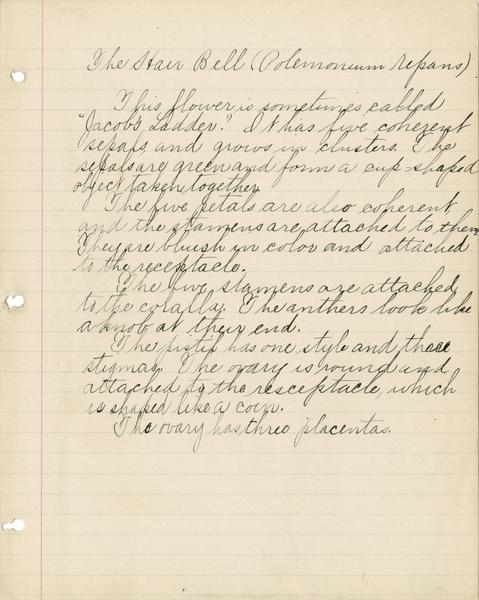 The Hair Bell (Polemonium repans)
This flower is sometimes called
"Jacob's Ladder." It has five coherent
sepals and grows in clusters. The
sepals are green and form a cup-shaped
object taken together.
The five petals are also coherent
and the stamens are attached to them.
They are bluish in color and attached
to the receptacle.
The five stamens are attached
to the corolla. The anthers look like
a knob at their end.
The pistil has one style and three
stigmas. The ovary is round and
attached to the resceptacle, which
is shaped like a coin.
The ovary has three placentas.